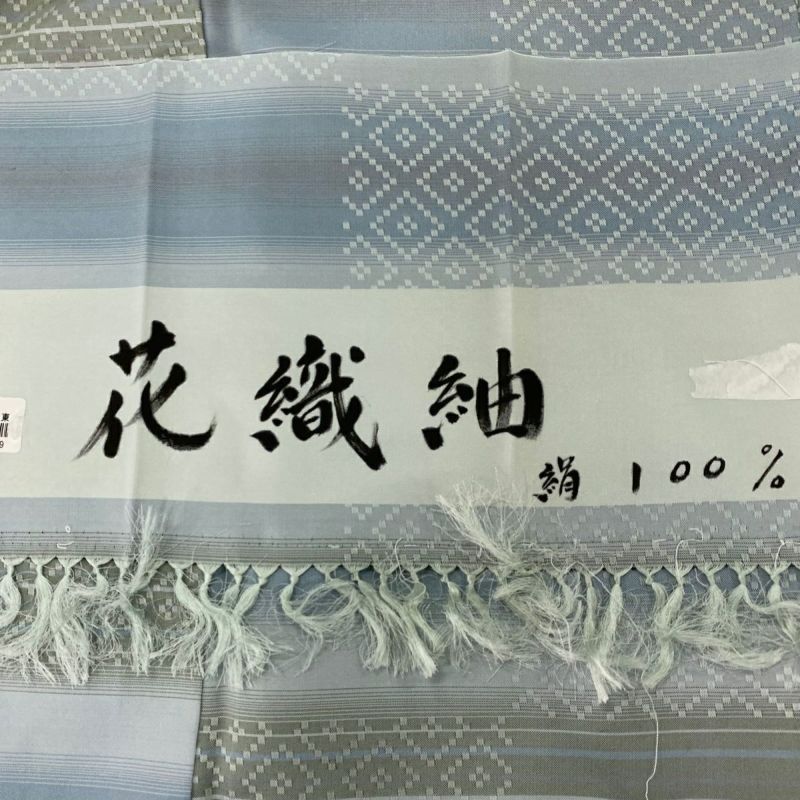 花織紬
絹 100%
東
9